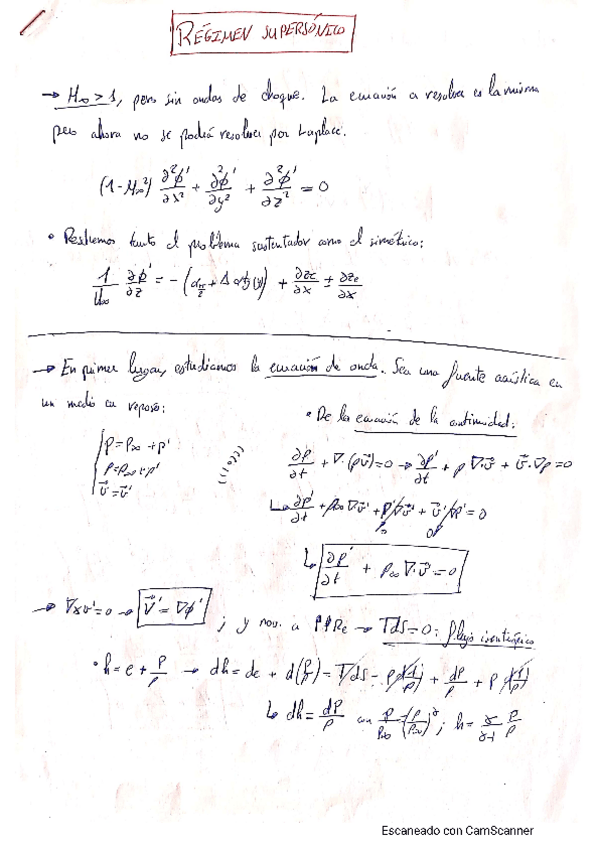 RÉGIMEN SUPERSÓNICO
→ M∞ > 1, pero sin ondas de choque. La ecuación a resolver es la misma
pero ahora no se podrá resolver por Laplace.
(1-M∞²) ∂²ϕ'/∂x² + ∂²ϕ'/∂y² + ∂²ϕ'/∂z² = 0
• Resolvemos tanto el problema sustentador como el simétrico:
1/U∞ ∂ϕ'/∂z = -( + Δ (y)) + ∂zc/∂x ± ∂ze/∂x
→ En primer lugar, estudiamos la ecuación de onda. Sea una fuente acústica en
un medio en reposo:
• De la ecuación de la continuidad:
p = p∞ + p'
ρ = ρ∞ + ρ'
v⃗ = v⃗'
∂ρ/∂t + ∇·(ρv⃗) = 0 → ∂ρ'/∂t + ρ ∇·v⃗ + v⃗·∇ρ = 0
↳ ∂ρ'/∂t + ρ∞ ∇v⃗' + ρ'∇v⃗' + v⃗'∇ρ' = 0
↳ ∂ρ'/∂t + ρ∞ ∇·v⃗' = 0
→ ∇×v' = 0 → v⃗' = ∇ϕ' ; y nos. a → Tds = 0: flujo isentrópico
• h = e + p/ρ → dh = de + d(p/ρ) = Tds - p d(1/ρ) + dp/ρ + p d(1/ρ)
↳ dh = dp/ρ con p/p∞ = (ρ/ρ∞)^γ ; h = γ/γ-1 p/ρ
Escaneado con CamScanner